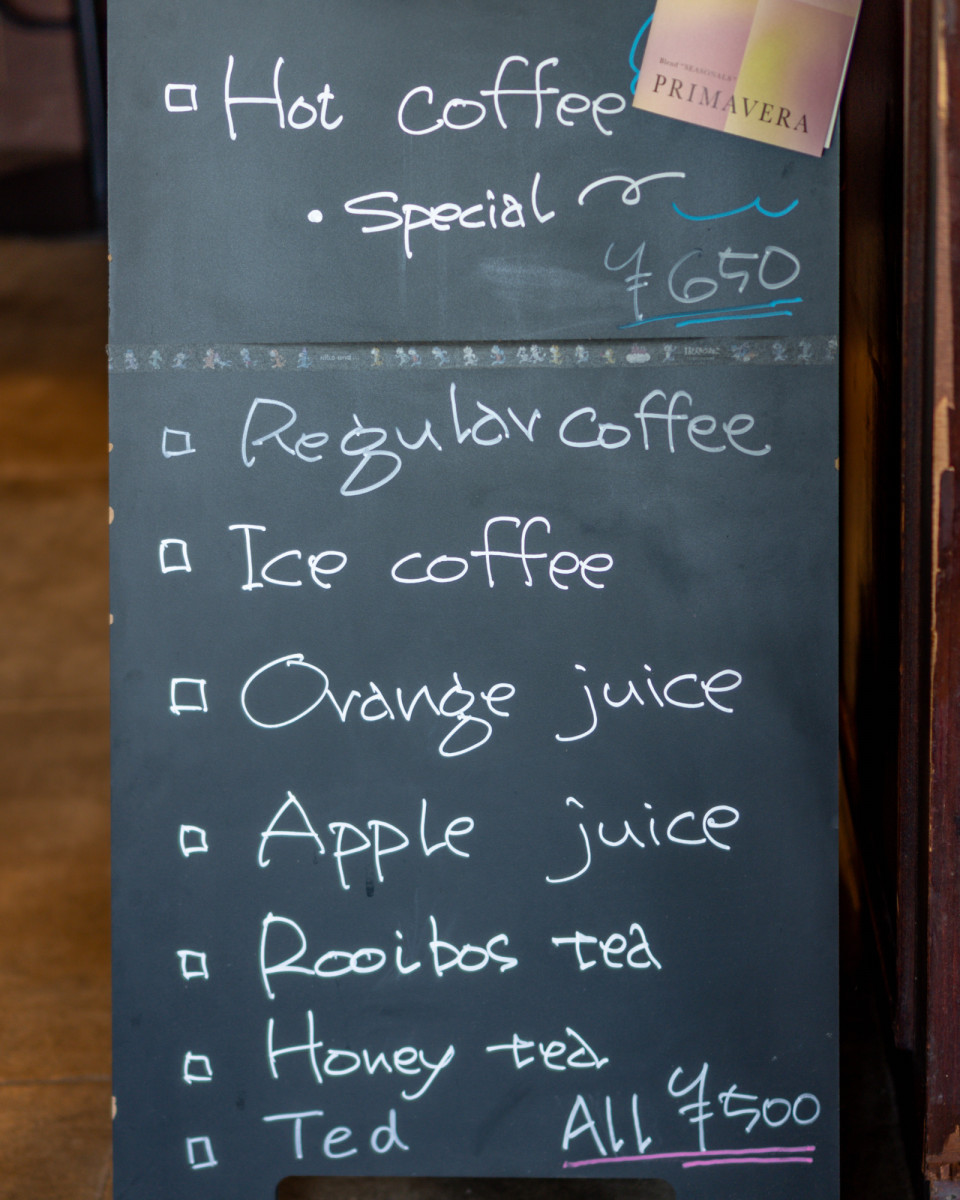 Blend "SEASONALS"
PRIMAVERA
□ Hot coffee
• Special
¥650
□ Regular coffee
□ Ice coffee
□ Orange juice
□ Apple juice
□ Rooibos tea
□ Honey tea
□ Tea All ¥500